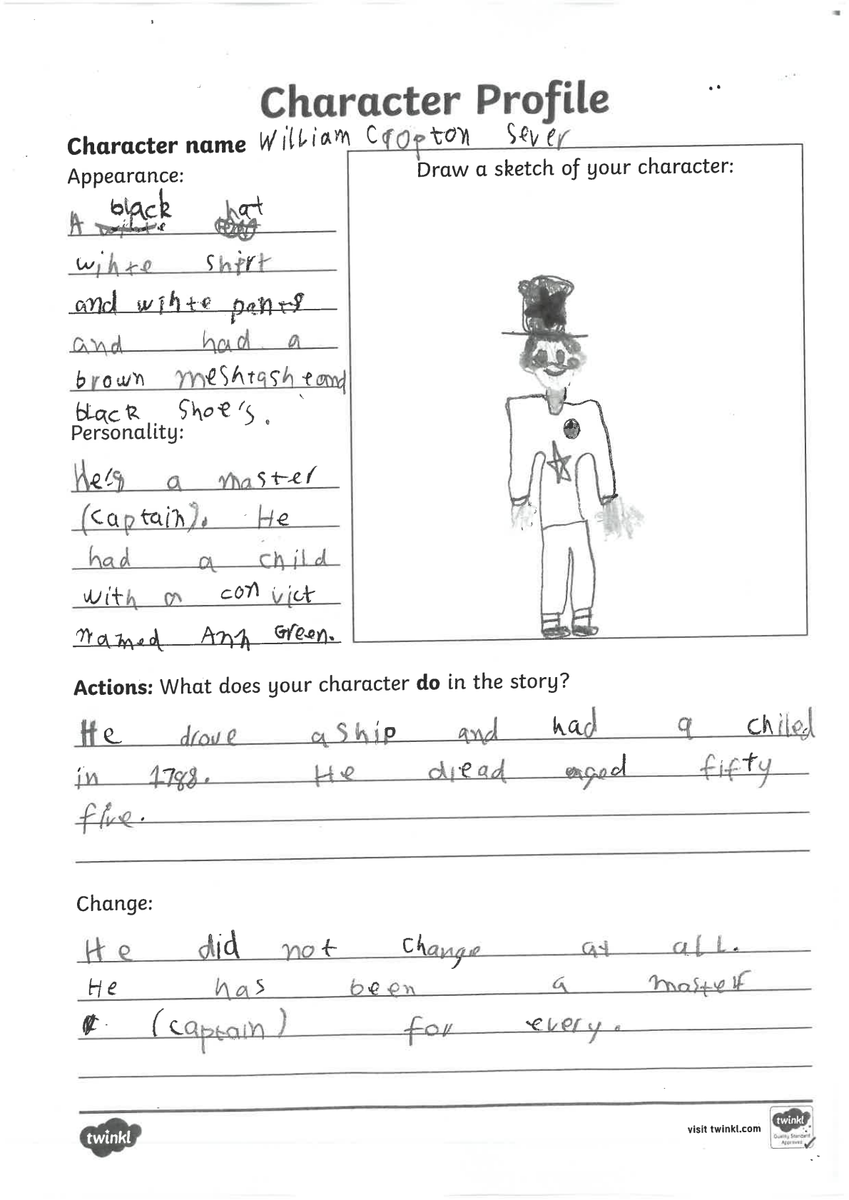 Character Profile
Character name William Cropton Sever
Appearance:
Draw a sketch of your character:
A black hat
wihte shirt
and wihte pants
and had a
brown meshtashe and
black shoe's.
Personality:
He's a master
(captain). He
had a child
with a convict
named Ann Green.
Actions: What does your character do in the story?
He drove a ship and had a chiled
in 1788. He diead aged fifty
five.
Change:
He did not change at all.
He has been a master
(captain) for every.
twinkl
visit twinkl.com
twinkl
Quality Standard
Approved